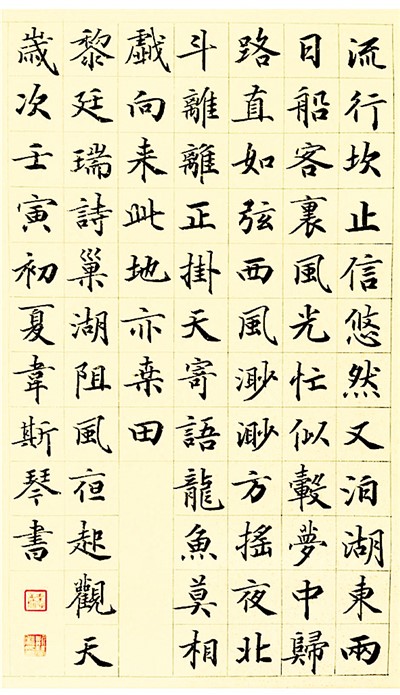 流行坎止信悠然又泊湖東兩
日船客裏風光忙似轂夢中歸
路直如弦西風渺渺方搖夜北
斗離離正掛天寄語龍魚莫相
戱向来此地亦桒田
黎廷瑞詩巢湖阻風亱起觀天
歲次壬寅初夏韋斯琴書